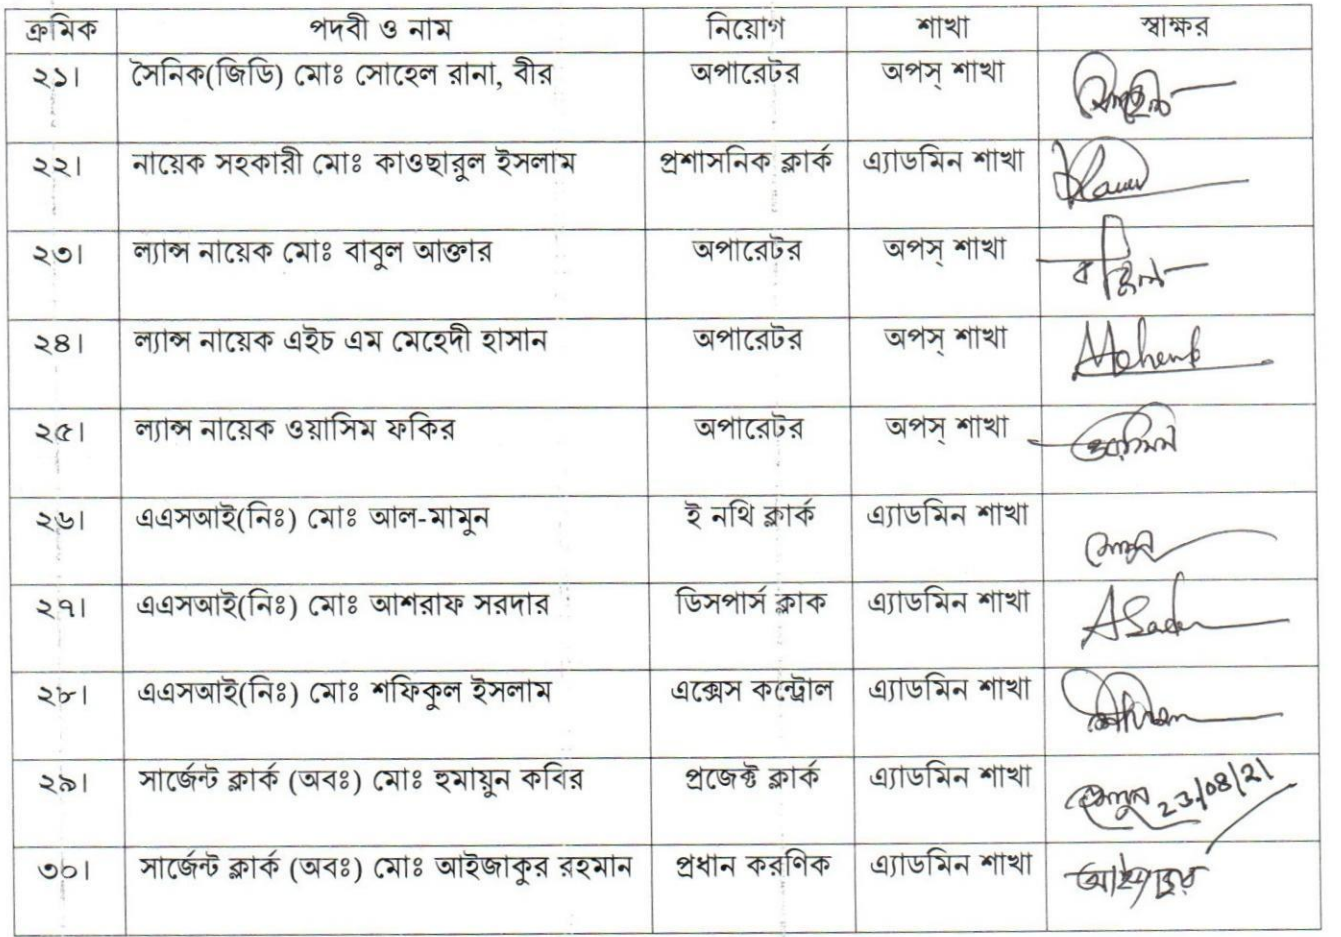 ক্রমিক পদবী ও নাম নিয়োগ শাখা স্বাক্ষর
২১। সৈনিক(জিডি) মোঃ সোহেল রানা, বীর অপারেটর অপস্ শাখা
২২। নায়েক সহকারী মোঃ কাওছারুল ইসলাম প্রশাসনিক ক্লার্ক এ্যাডমিন শাখা
২৩। ল্যান্স নায়েক মোঃ বাবুল আক্তার অপারেটর অপস্ শাখা
২৪। ল্যান্স নায়েক এইচ এম মেহেদী হাসান অপারেটর অপস্ শাখা
২৫। ল্যান্স নায়েক ওয়াসিম ফকির অপারেটর অপস্ শাখা
২৬। এএসআই(নিঃ) মোঃ আল-মামুন ই নথি ক্লার্ক এ্যাডমিন শাখা
২৭। এএসআই(নিঃ) মোঃ আশরাফ সরদার ডিসপার্স ক্লাক এ্যাডমিন শাখা
২৮। এএসআই(নিঃ) মোঃ শফিকুল ইসলাম এক্সেস কন্ট্রোল এ্যাডমিন শাখা
২৯। সার্জেন্ট ক্লার্ক (অবঃ) মোঃ হুমায়ুন কবির প্রজেক্ট ক্লার্ক এ্যাডমিন শাখা 23/08/21
৩০। সার্জেন্ট ক্লার্ক (অবঃ) মোঃ আইজাকুর রহমান প্রধান করণিক এ্যাডমিন শাখা